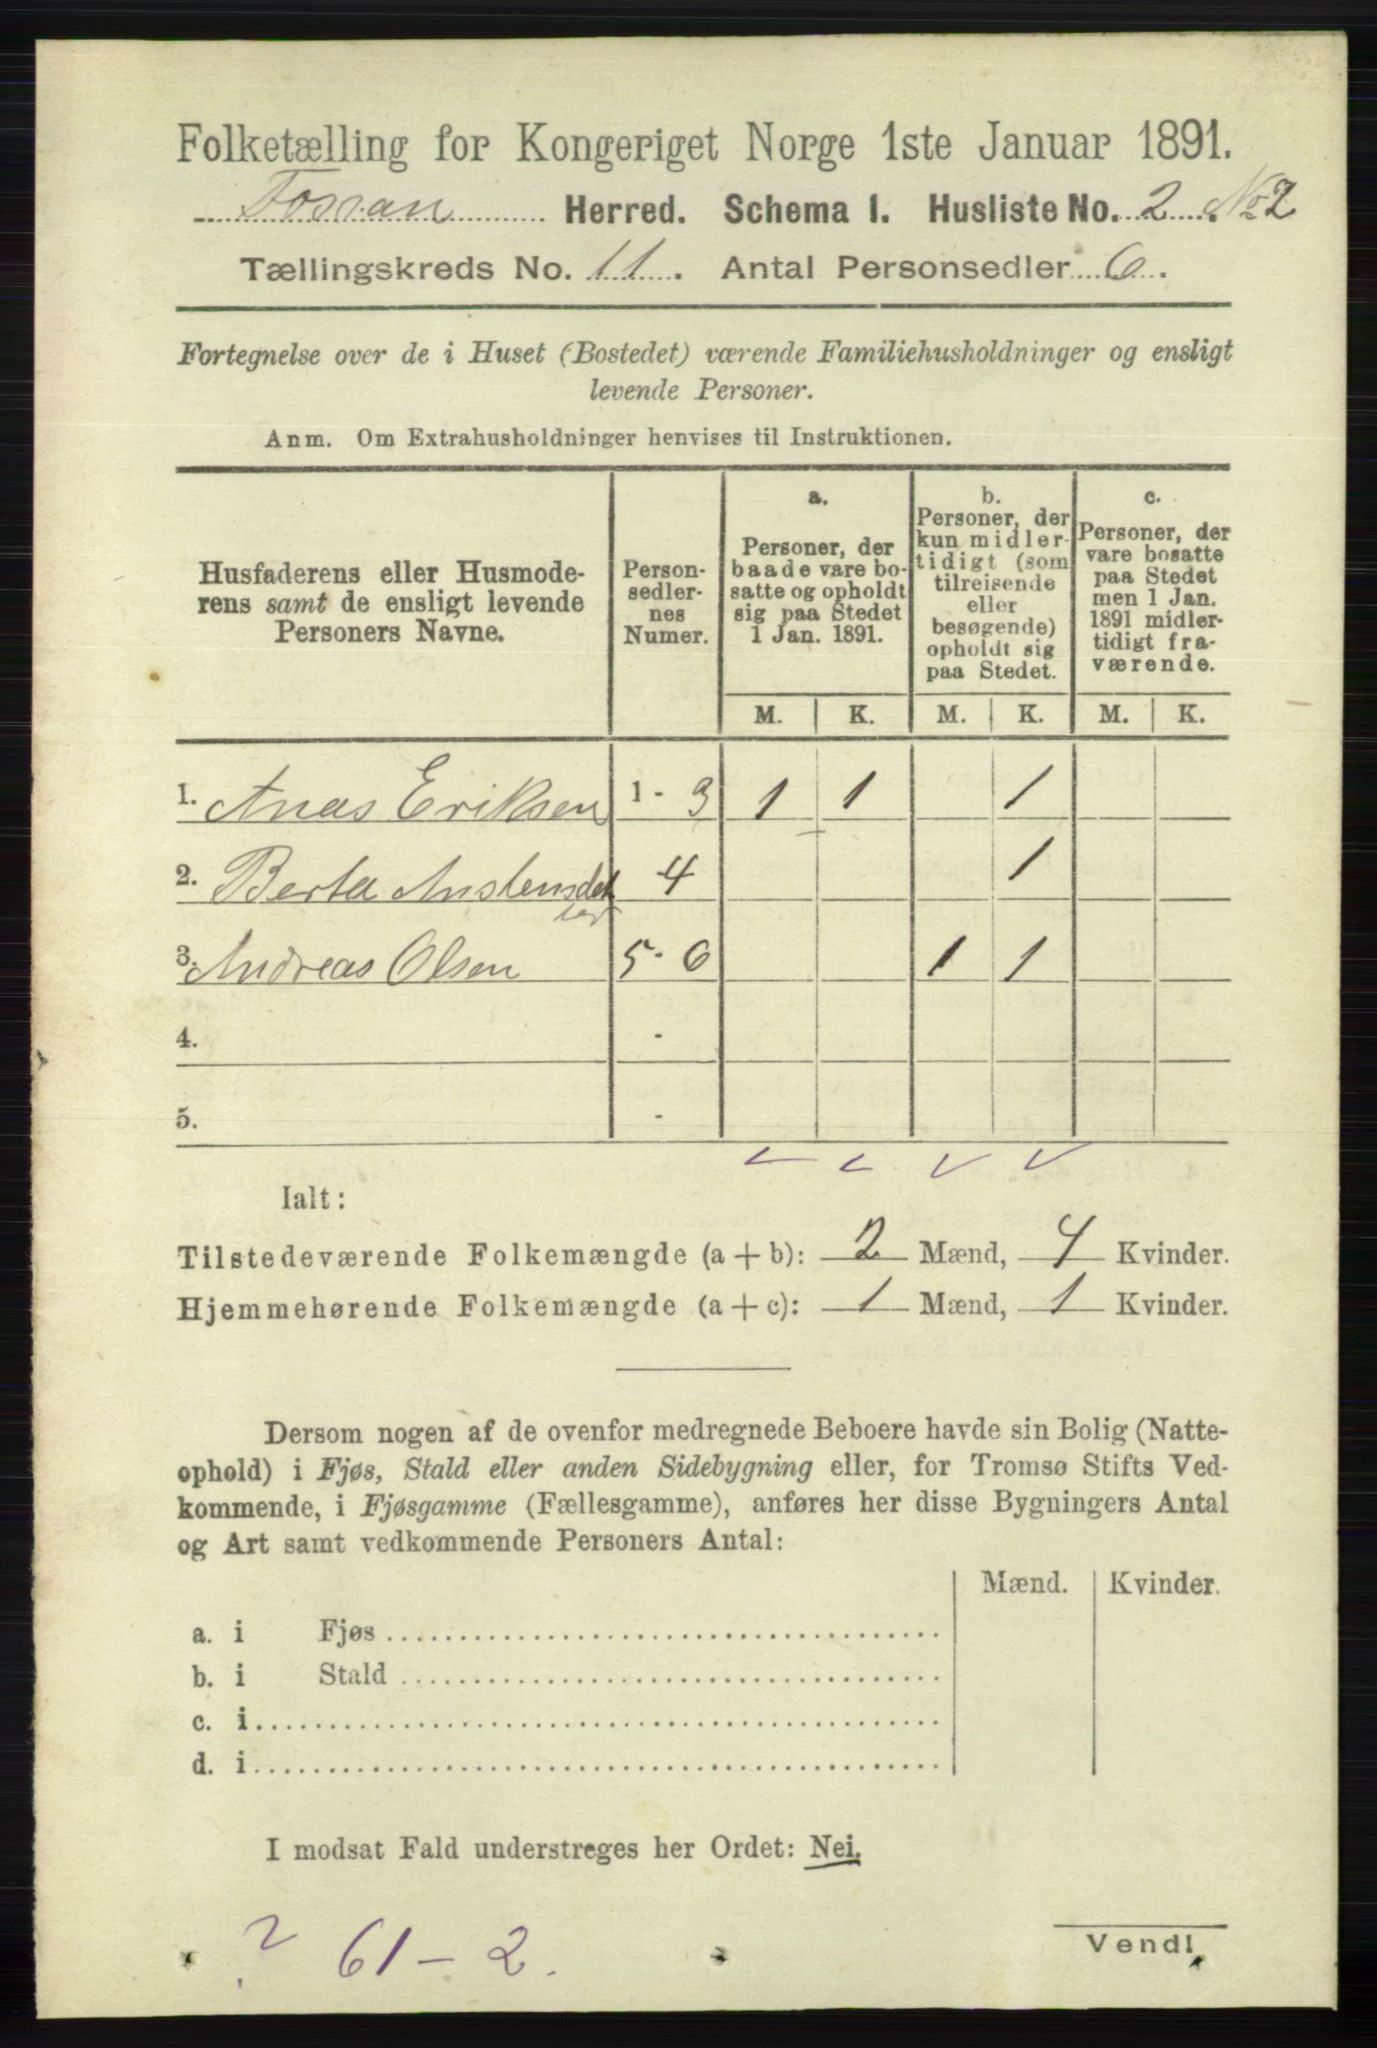 Folketælling for Kongeriget Norge 1ste Januar 1891.
Fossan Herred. Schema I. Husliste No. 2. No 2
Tællingskreds No. 11. Antal Personsedler 6.
Fortegnelse over de i Huset (Bostedet) værende Familiehusholdninger og ensligt
levende Personer.
Anm. Om Extrahusholdninger henvises til Instruktionen.
Husfaderens eller Husmode-
rens samt de ensligt levende
Personers Navne.
Person-
sedler-
nes
Numer.
a.
Personer, der
baade vare bo-
satte og opholdt
sig paa Stedet
1 Jan. 1891.
b.
Personer, der
kun midler-
tidigt (som
tilreisende
eller
besøgende)
opholdt sig
paa Stedet.
c.
Personer, der
vare bosatte
paa Stedet
men 1 Jan.
1891 midler-
tidigt fra-
værende.
M. K. M. K. M. K.
1. Anas Eriksen 1 - 3 1 1 1
2. Berta - 4 1
3. Andreas Olsen 5 - 6 1 1
4. -
5. -
Ialt:
Tilstedeværende Folkemængde (a + b): 2 Mænd, 4 Kvinder.
Hjemmehørende Folkemængde (a + c): 1 Mænd, 1 Kvinder.
Dersom nogen af de ovenfor medregnede Beboere havde sin Bolig (Natte-
ophold) i Fjøs, Stald eller anden Sidebygning eller, for Tromsø Stifts Ved-
kommende, i Fjøsgamme (Fællesgamme), anføres her disse Bygningers Antal
og Art samt vedkommende Personers Antal:
Mænd. Kvinder.
a. i Fjøs
b. i Stald
c. i
d. i
I modsat Fald understreges her Ordet: Nei.
? 61 - 2.
Vend!